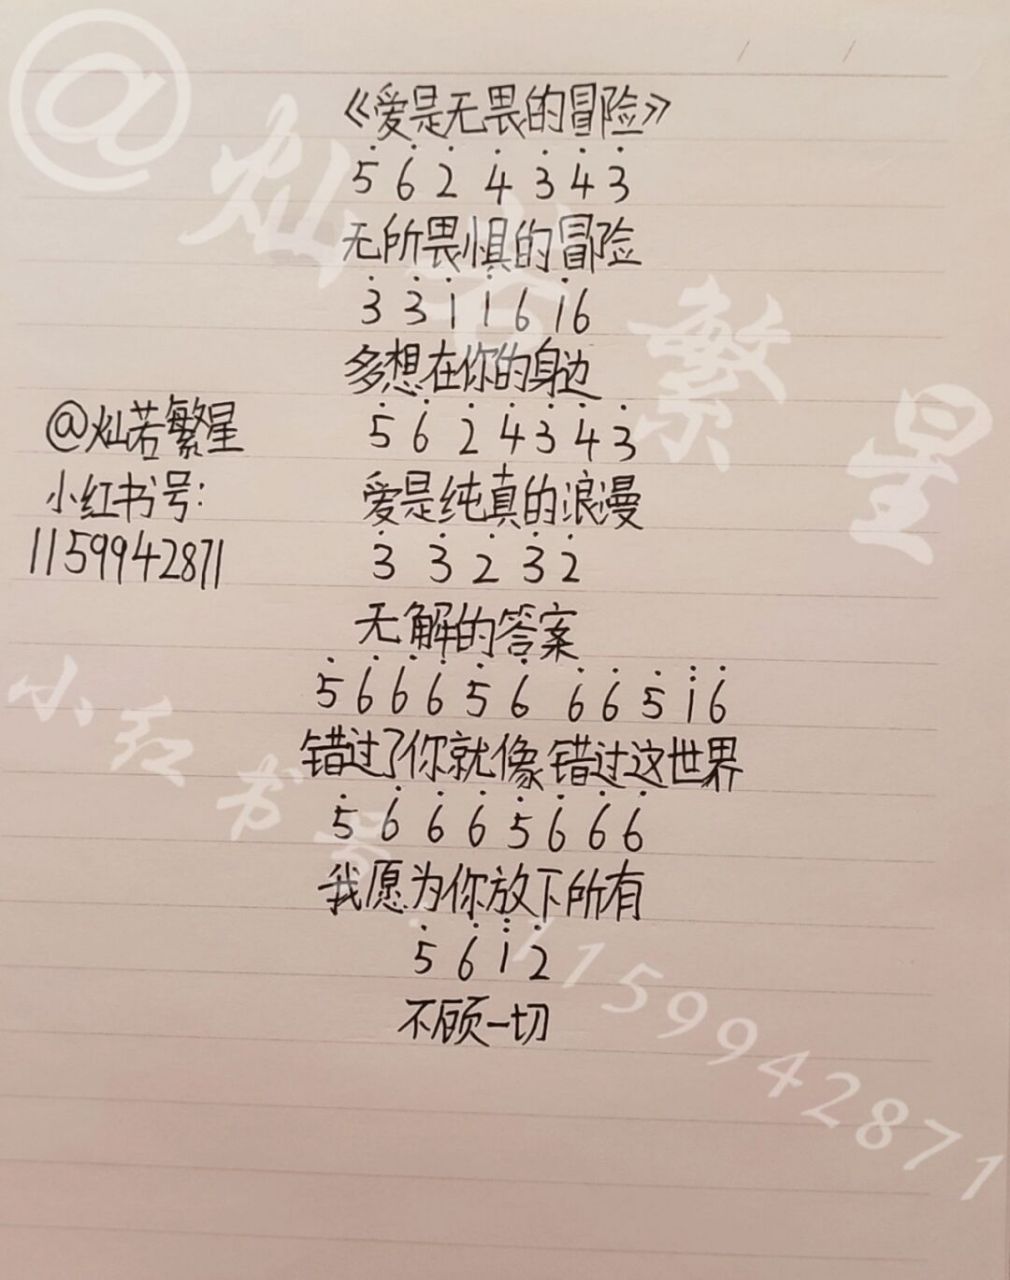 《爱是无畏的冒险》
5 6 2̇ 4̇ 3̇ 4̇ 3̇
无所畏惧的冒险
3̇ 3̇ 1̇ 1̇ 6 1̇ 6
多想在你的身边
5̇ 6̇ 2̇ 4̇ 3̇ 4̇ 3̇
爱是纯真的浪漫
3̇ 3̇ 2̇ 3̇ 2̇
无解的答案
5̇ 6̇ 6̇ 6̇ 5̇ 6̇ 6̇ 6̇ 5̇ 1̈ 6̇
错过了你就像 错过这世界
5̇ 6̇ 6̇ 6̇ 5̇ 6̇ 6̇ 6̇
我愿为你放下所有
5̇ 6̇ 1̈ 2̇
不顾一切
@灿若繁星
小红书号:
1159942871
@灿若繁星
小红书号:1159942871